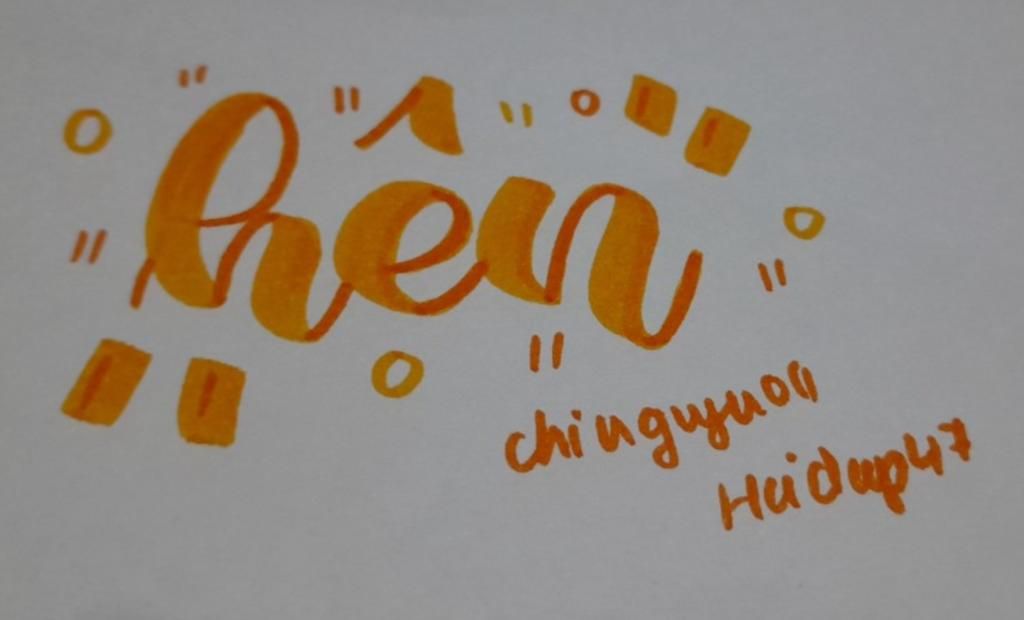 hên
chinguyuon
Haidep47